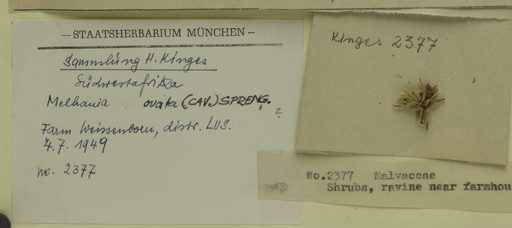 — STAATSHERBARIUM MÜNCHEN —
Sammlung H. Kinges
Südwestafrika
Melhania ovata (CAV.) SPRENG.
?
Farm Weissenborn, distr. LUS.
4.7.1949
no. 2377
Kinges 2377
No.2377 Malvaceae
Shrubs, ravine near farmhou